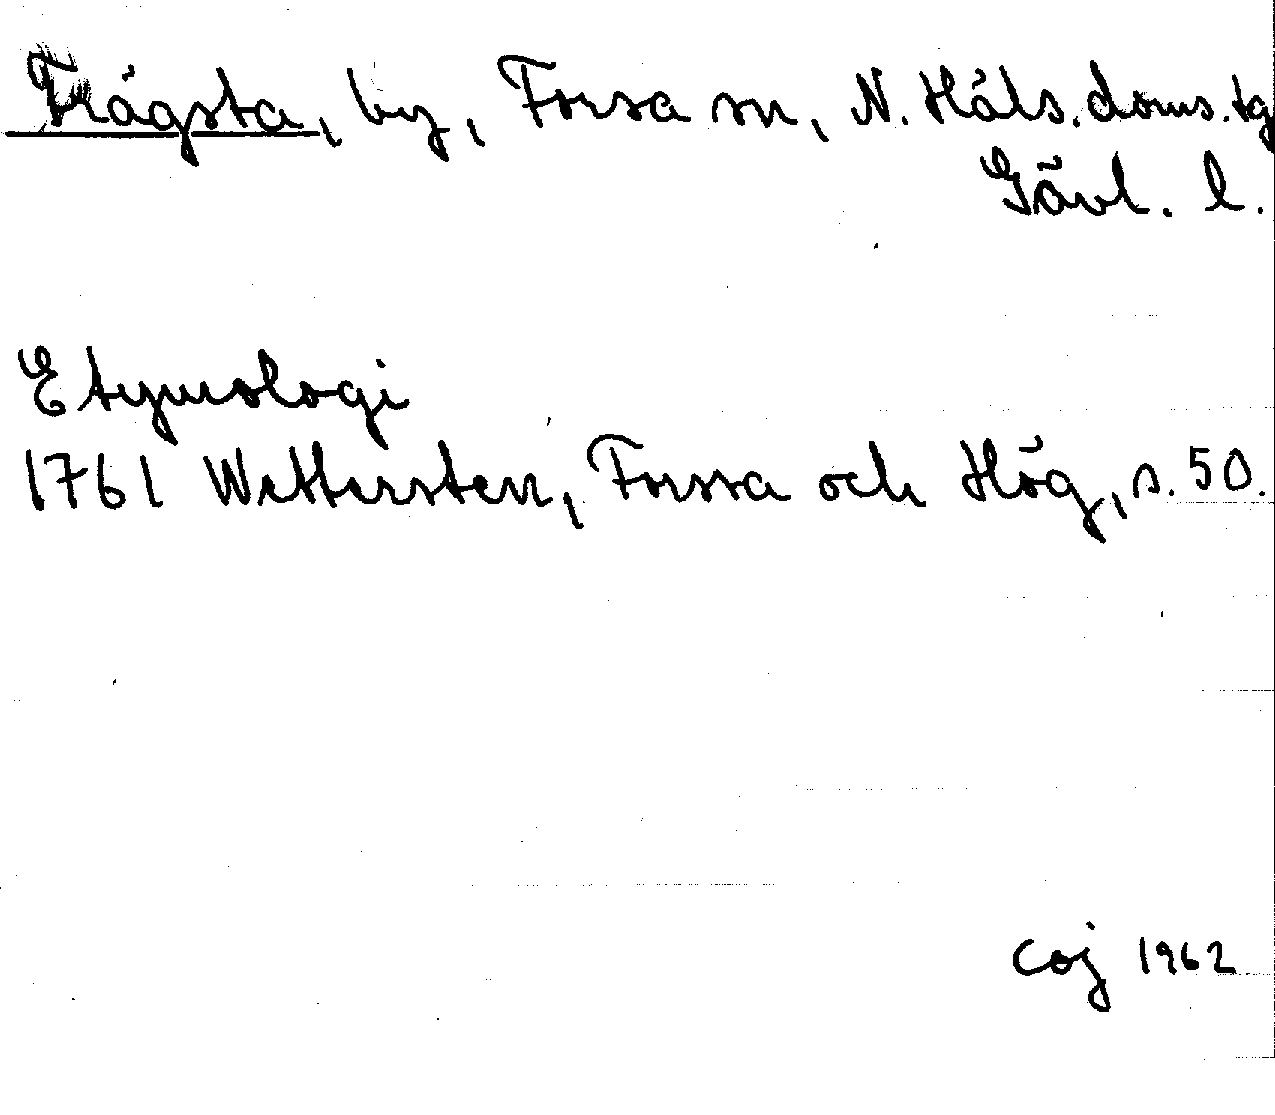 Frågsta, by, Forsa sn, N. Häls. doms. tg
Gävl. l.
Etymologi
1761 Wettersten, Forssa och Hög, s. 50.
Coj 1962